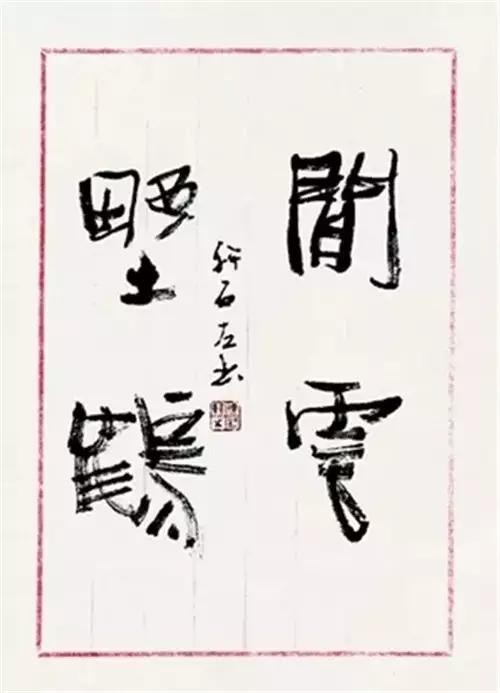 閒雲
野鶴
石左书